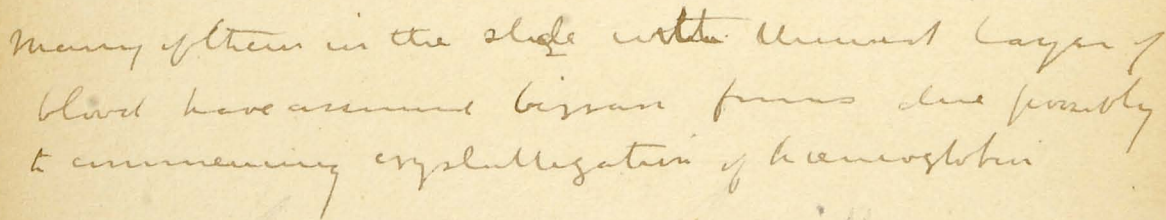 Many of them in the slide with thinnest layer of
blood have assumed bizarre forms due possibly
to commencing crystallization of haemoglobin